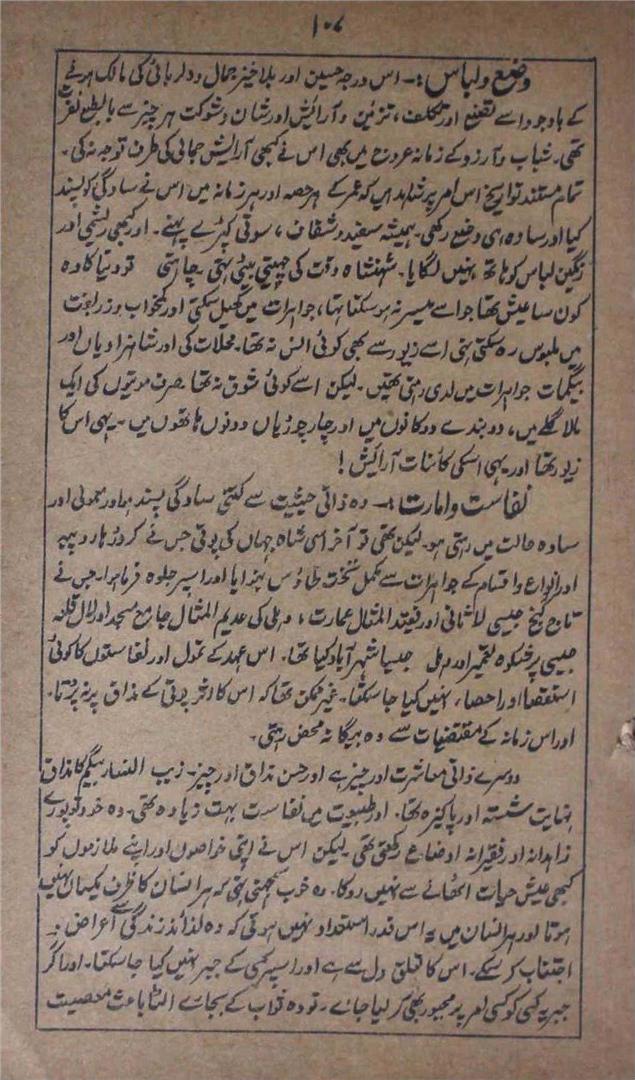 ۱۰۸
وضع و لباس :- اس درجہ حسین اور بلا خیز جمال و دلربائی کی مالک ہونے
کے باوجود اسے تصنع اور تکلف، تزئین و آرائش اور شان و شوکت ہر چیز سے بالطبع نفرت
تھی۔ شباب و آرزو کے زمانہ عروج میں بھی اس نے کبھی آرایش جمالی کی طرف توجہ نہ کی۔
تمام مستند تواریخ اس امر پر شاہد ہیں کہ عمر کے ہر حصہ اور ہر زمانہ میں اس نے سادگی کو پسند
کیا اور سادہ ہی وضع رکھی۔ ہمیشہ سفید و شفاف، سوتی کپڑے پہنے۔ اور کبھی ریشمی اور
رنگین لباس کو ہاتھ نہیں لگایا۔ شہنشاہ وقت کی چہیتی بیٹی تھی۔ چاہتی تو دنیا کا وہ
کون سا عیش تھا جو اسے میسر نہ ہو سکتا تھا، جواہرات میں کھیل سکتی اور کمخواب و زربفت
میں ملبوس رہ سکتی تھی اسے زیور سے بھی کوئی انس نہ تھا۔ محلات کی اور شاہزادیاں اور
بیگمات جواہرات میں لدی رہتی تھیں۔ لیکن اسے کوئی شوق نہ تھا صرف موتیوں کی ایک
مالا گلے میں، دو بندے دو کانوں میں اور چار چوڑیاں دونوں ہاتھوں میں۔ یہی اس کا
زیور تھا اور یہی اسکی کائنات آرائش!
نفاست و امارت :- وہ ذاتی حیثیت سے کتنی سادگی پسند ہو اور معمولی اور
سادہ حالت میں رہتی ہو۔ لیکن تھی تو آخر اسی شاہ جہاں کی پوتی جس نے کروڑہا روپیہ
اور انواع و اقسام کے جواہرات سے مکمل تخت طاؤس بنوایا اور اسپر جلوہ فرما ہوا۔ جس نے
تاج گنج جیسی لاثانی اور فقید المثال عمارت، دہلی کی عدیم المثال جامع مسجد اور لال قلعہ
جیسی پرشکوہ تعمیر اور دہلی جیسا شہر آباد کیا تھا۔ اس عہد کے تمول اور نفاستوں کا کوئی
استقصا اور احصاء نہیں کیا جا سکتا۔ غیر ممکن تھا کہ اس کا اثر پوتی کے مذاق پر نہ پڑتا۔
اور اس زمانہ کے مقتضیات سے وہ بیگانہ محض رہتی۔
دوسرے ذاتی معاشرت اور چیز ہے اور حسن مذاق اور چیز۔ زیب النساء بیگم کا مذاق
نہایت شستہ اور پاکیزہ تھا۔ اور طبیعت میں نفاست بہت زیادہ تھی۔ وہ خود تو پورے
زاہدانہ اور فقیرانہ اوضاع رکھتی تھی لیکن اس نے اپنی خواصوں اور اپنے ملازموں کو
کبھی عیش حیات اٹھانے سے نہیں روکا۔ وہ خوب سمجھتی تھی کہ ہر انسان کا ظرف یکساں نہیں
ہوتا اور ہر انسان میں یہ اس قدر استعداد نہیں ہوتی کہ وہ لذائذ زندگی سے اعراض و
اجتناب کر سکے۔ اس کا تعلق دل سے ہے اور اسپر کسی کے جبر نہیں کیا جا سکتا۔ اور اگر
جبریہ کسی کو کسی امر پر مجبور بھی کر لیا جائے۔ تو وہ ثواب کے بجائے الٹا باعث معصیت